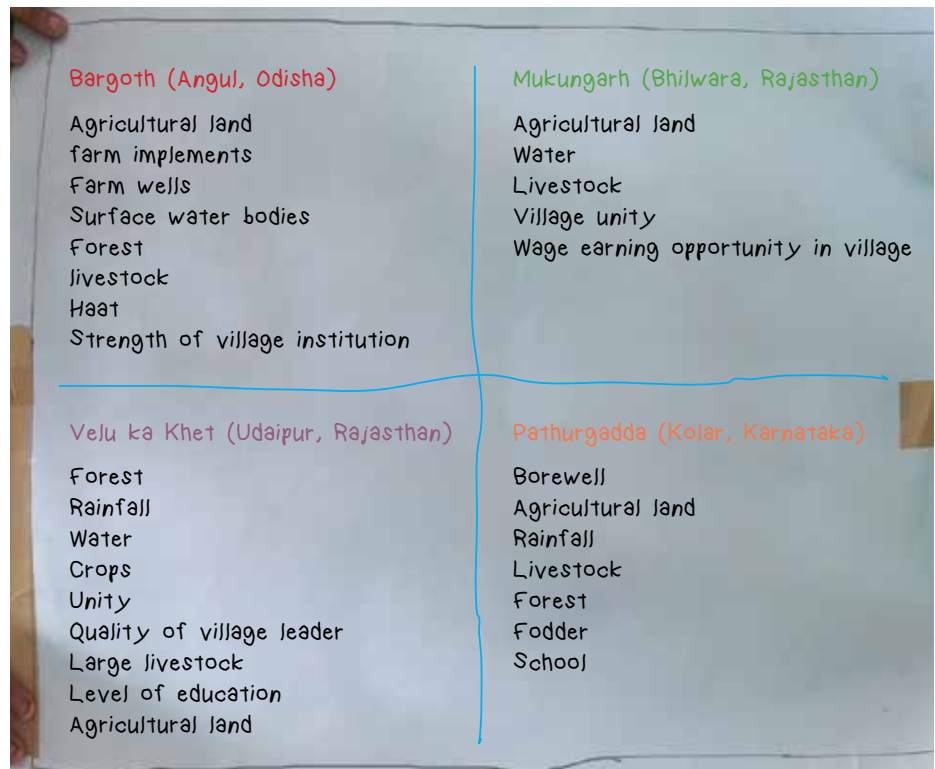 Bargoth (Angul, Odisha)
Agricultural land
farm implements
Farm wells
Surface water bodies
Forest
livestock
Haat
Strength of village institution
Mukungarh (Bhilwara, Rajasthan)
Agricultural land
Water
Livestock
Village unity
Wage earning opportunity in village
Velu ka Khet (Udaipur, Rajasthan)
Forest
Rainfall
Water
Crops
Unity
Quality of village leader
Large livestock
Level of education
Agricultural land
Pathurgadda (Kolar, Karnataka)
Borewell
Agricultural land
Rainfall
Livestock
Forest
Fodder
School